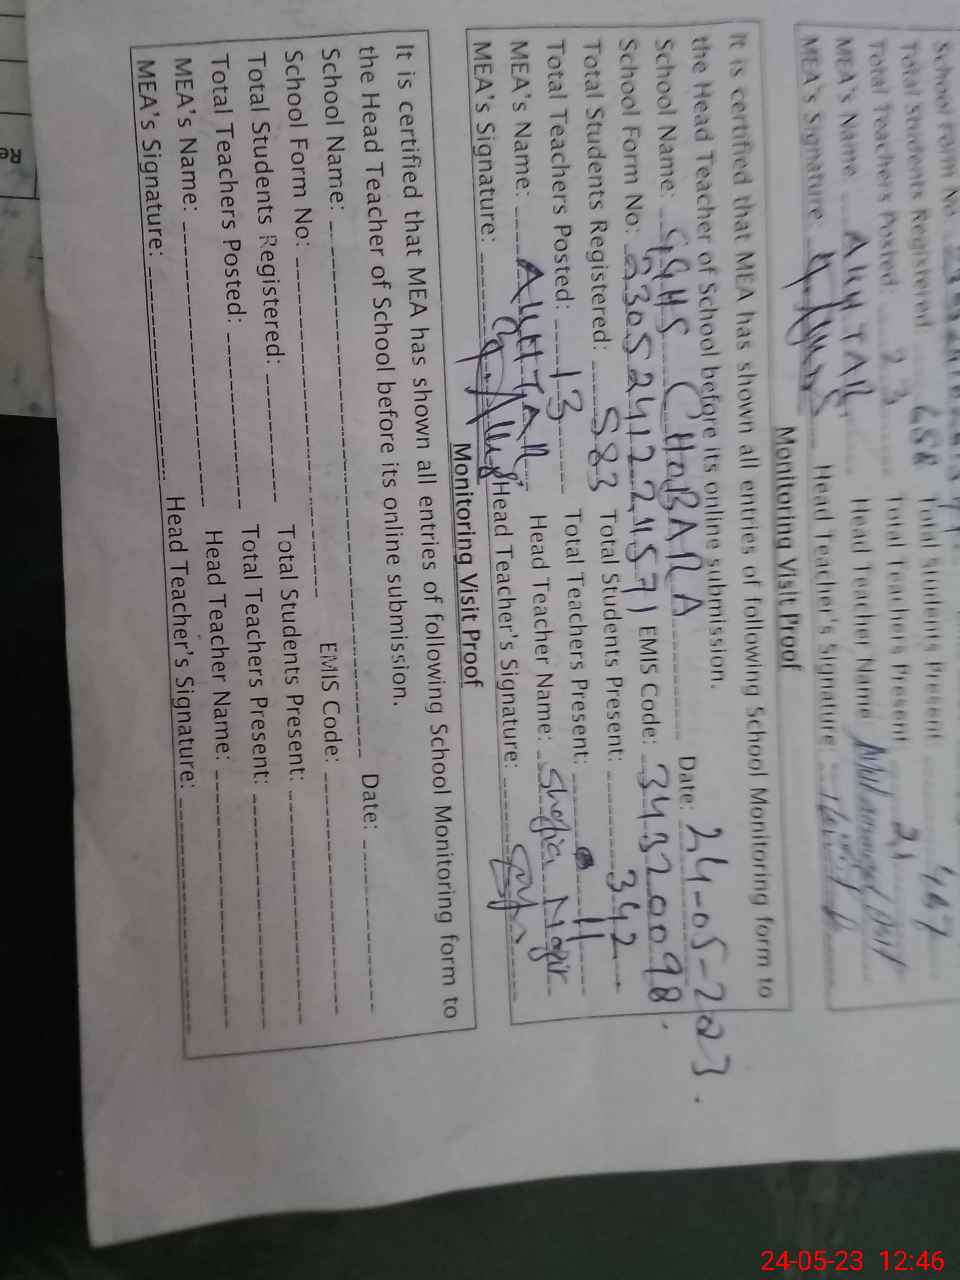 School Form No:
Total Students Registered: 658 Total Students Present: 467
Total Teachers Posted: 23 Total Teachers Present: 21
MEA's Name: AKHTAR Head Teacher Name:
MEA's Signature: Head Teacher's Signature:
Monitoring Visit Proof
It is certified that MEA has shown all entries of following School Monitoring form to
the Head Teacher of School before its online submission.
School Name: GGHS CHOBARA Date: 24-05-2023.
School Form No: EMIS Code: 34320098.
Total Students Registered: 583 Total Students Present: 342
Total Teachers Posted: 13 Total Teachers Present: 11
MEA's Name: AKHTAR Head Teacher Name: Shazia
MEA's Signature: Head Teacher's Signature:
Monitoring Visit Proof
It is certified that MEA has shown all entries of following School Monitoring form to
the Head Teacher of School before its online submission.
School Name: Date:
School Form No: EMIS Code:
Total Students Registered: Total Students Present:
Total Teachers Posted: Total Teachers Present:
MEA's Name: Head Teacher Name:
MEA's Signature: Head Teacher's Signature:
Re
24-05-23 12:46